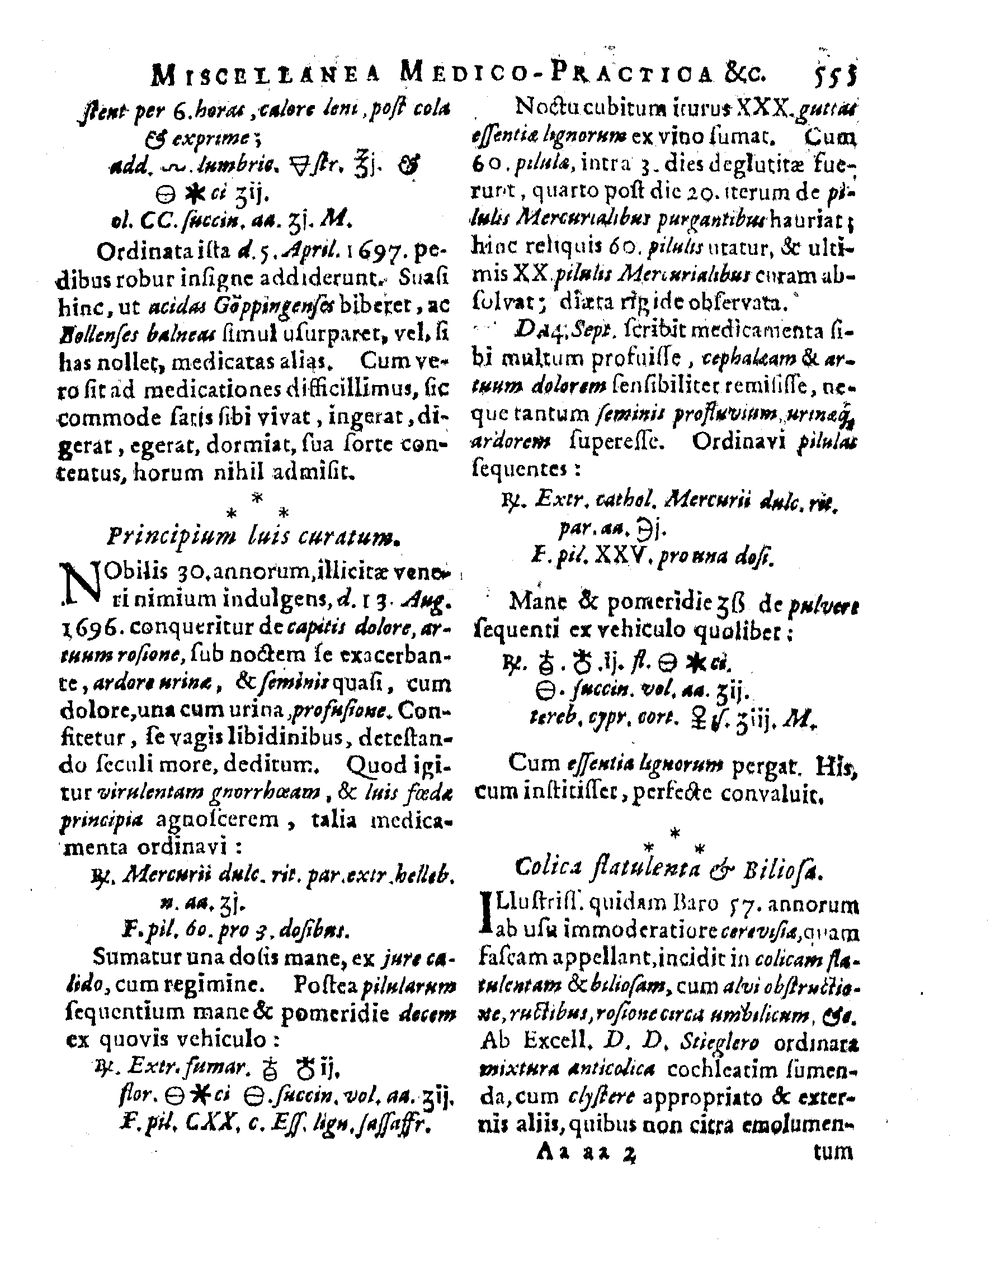 MISCELLANEA MEDICO-PRACTICA &c. 553
ſtent per 6. horas, calore leni, poſt cola
& exprime;
add. ~. lumbric. 🜄ſtr. ℥j. &
🜔 ✱ci ʒij.
ol. CC. ſuccin. aa. ʒj. M.
Ordinata iſta d. 5. April. 1697. pe-
dibus robur inſigne addiderunt. Suaſi
hinc, ut acidas Göppingenſes biberet, ac
Bollenſes balneas ſimul uſurparet, vel, ſi
has nollet, medicatas alias. Cum ve-
ro ſit ad medicationes difficillimus, ſic
commode ſatis ſibi vivat, ingerat, di-
gerat, egerat, dormiat, ſua ſorte con-
tentus, horum nihil admiſit.
*
* *
Principium luis curatum.
NObilis 30. annorum, illicitæ vene-
ri nimium indulgens, d. 13. Aug.
1696. conqueritur de capitis dolore, ar-
tuum roſione, ſub noctem ſe exacerban-
te, ardore urinæ, & ſeminis quaſi, cum
dolore, una cum urina, profuſione. Con-
fitetur, ſe vagis libidinibus, deteſtan-
do ſeculi more, deditum. Quod igi-
tur virulentam gnorrhœam, & luis fœdæ
principia agnoſcerem, talia medica-
menta ordinavi:
℞. Mercurii dulc. rit. par. extr. helleb.
n. aa. ʒj.
F. pil. 60. pro 3. doſibus.
Sumatur una doſis mane, ex jure ca-
lido, cum regimine. Poſtea pilularum
ſequentium mane & pomeridie decem
ex quovis vehiculo:
℞. Extr. fumar. ♁ ♁ ij.
flor. 🜔 ✱ci 🜔. ſuccin. vol. aa. ʒij.
F. pil. CXX. c. Eſſ. lign. ſaſſafr.
Noctu cubitum iturus XXX. guttas
eſſentiæ lignorum ex vino ſumat. Cum
60. pilulæ, intra 3. dies deglutitæ fue-
runt, quarto poſt die 20. iterum de pi-
lulis Mercurialibus purgantibus hauriat;
hinc reliquis 60. pilulis utatur, & ulti-
mis XX. pilulis Mercurialibus curam ab-
ſolvat; diæta rigide obſervata.
D. 14. Sept. ſcribit medicamenta ſi-
bi multum profuiſſe, cephalæam & ar-
tuum dolorem ſenſibiliter remiſiſſe, ne-
que tantum ſeminis profluvium, urinæq;
ardorem ſupereſſe. Ordinavi pilulas
ſequentes:
℞. Extr. cathol. Mercurii dulc. rit.
par. aa. ℈j.
F. pil. XXV. pro una doſi.
Mane & pomeridie ʒß de pulvere
ſequenti ex vehiculo quolibet:
℞. ♁. ♁. ij. fl. 🜔 ✱ci.
🜔. ſuccin. vol. aa. ʒij.
tereb. cypr. cort. ♀ iſ. ʒiij. M.
Cum eſſentia lignorum pergat. His,
cum inſtitiſſet, perfecte convaluit.
*
* *
Colica flatulenta & Bilioſa.
ILluſtriſſ. quidam Baro 57. annorum
ab uſu immoderatiore cereviſiæ, quam
faſcam appellant, incidit in colicam fla-
tulentam & bilioſam, cum alvi obſtructio-
ne, ructibus, roſione circa umbilicum, &c.
Ab Excell. D. D. Stieglero ordinata
mixtura anticolica cochleatim ſumen-
da, cum clyſtere appropriato & exter-
nis aliis, quibus non citra emolumen-
Aa aa 2 tum